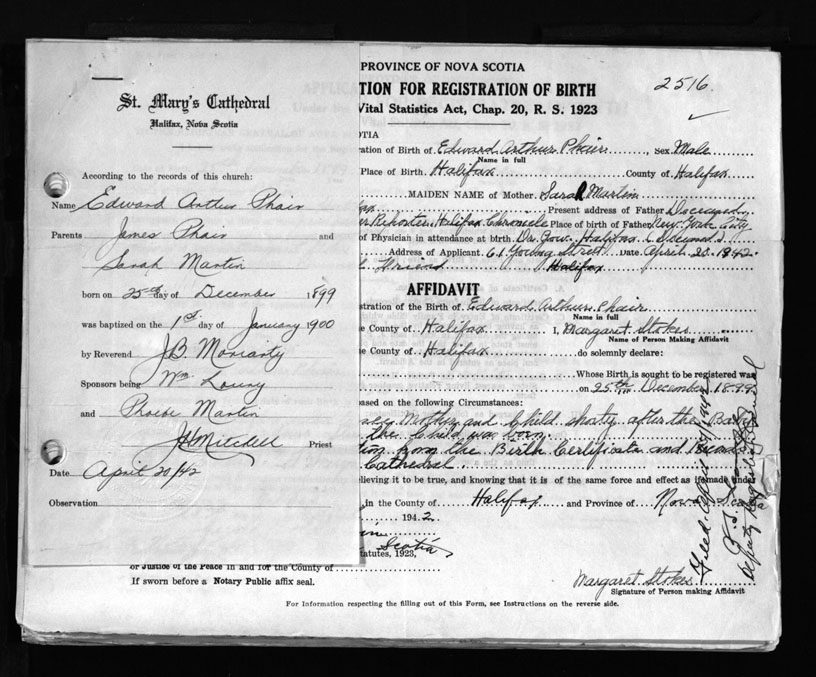 St. Mary's Cathedral
Halifax, Nova Scotia
According to the records of this church:
Name Edward Arthur Phair
Parents James Phair and
Sarah Martin
born on 25th day of December 1899
was baptized on the 1st day of January 1900
by Reverend J.B. Moriarty
Sponsors being Wm
and Phoebe Martin
Priest
Date April 20/42
Observation
PROVINCE OF NOVA SCOTIA
TION FOR REGISTRATION OF BIRTH
2516
Vital Statistics Act, Chap. 20, R. S. 1923
OTIA
ration of Birth of Edward Arthur Phair, Sex Male
Name in full
Place of Birth, Halifax County of Halifax
MAIDEN NAME of Mother, Sarah Martin
fax Present address of Father Deceased
er Reporter, Halifax Chronicle Place of birth of Father New York City
of Physician in attendance at birth, Dr. Gow, Halifax (Deceased)
Address of Applicant, 61 Young Street Date April 20 1942.
Friend Halifax
AFFIDAVIT
stration of the Birth of Edward Arthur Phair
Name in full
e County of Halifax I, Margaret Stokes
Name of Person Making Affidavit
e County of Halifax do solemnly declare:
Whose Birth is sought to be registered was
on 25th December 1899
based on the following Circumstances:
Mother and Child shortly after the
the Child was born.
tion from the Birth Certificate and
Cathedral.
elieving it to be true, and knowing that it is of the same force and effect as if made under
in the County of Halifax and Province of Nova Scotia
1942
Scotia
tatutes, 1923,
or Justice of the Peace in and for the County of
If sworn before a Notary Public affix seal.
Margaret Stokes
Signature of Person making Affidavit
For Information respecting the filling out of this Form, see Instructions on the reverse side.
Filed. April 24/1942
Deputy Registrar General